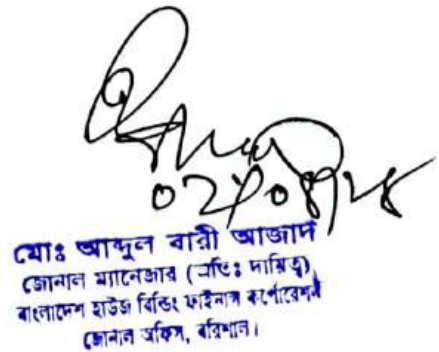 ০২/০৪/২৪
মোঃ আব্দুল বারী আজাদ
জোনাল ম্যানেজার (অতিঃ দায়িত্ব)
বাংলাদেশ হাউজ বিল্ডিং ফাইনান্স কর্পোরেশন
জোনাল অফিস, বরিশাল।